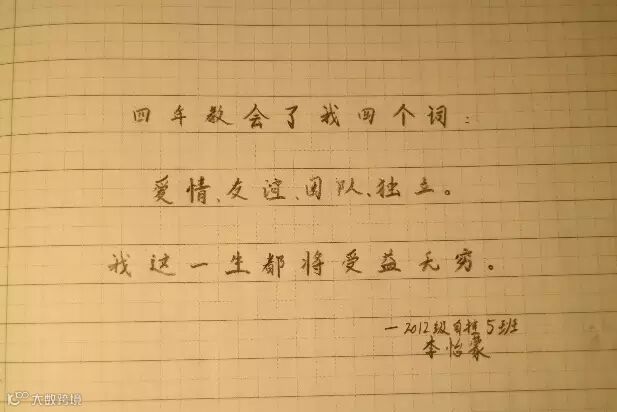 四年教会了我四个词：
爱情、友谊、团队、独立。
我这一生都将受益无穷。
—2012级自控5班
李怡蒙
大数跨境